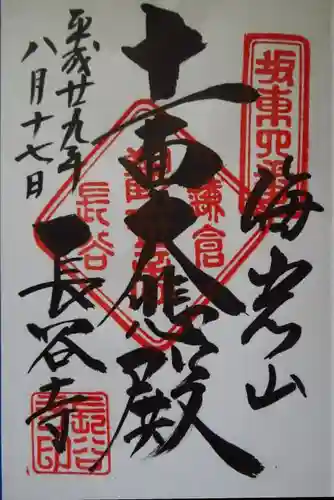 坂東四番
海光山
十一面大悲殿
鎌倉
長谷
長谷寺
平成廿九年
八月十七日